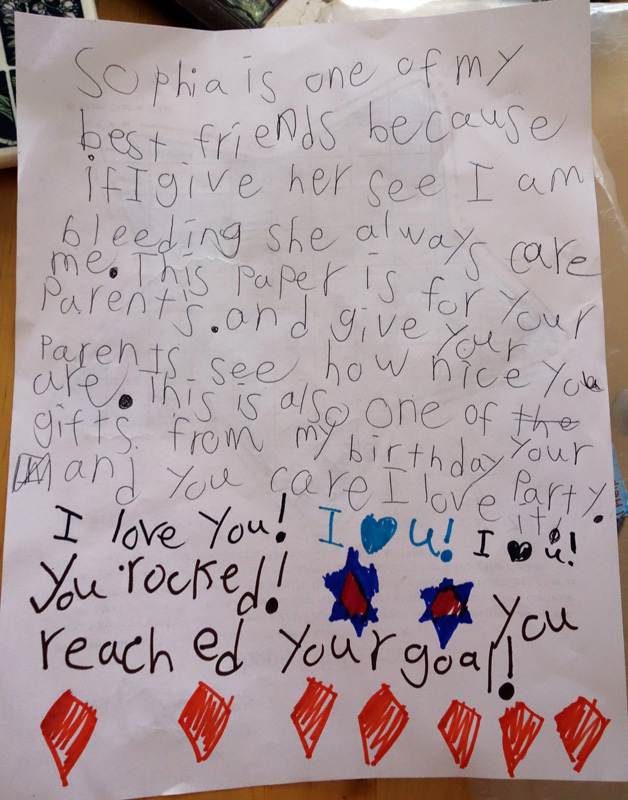 Sophia is one of my
best friends because
if I give her see I am
bleeding she always care
me. This paper is for your
Parent's. and give your
Parents see how nice you
are. This is also one of the
gifts from my birthday your
and you care I love Party.
it!
I love You! I ♥ u! I ♥ u!
You rocked!
you
reached your goal!